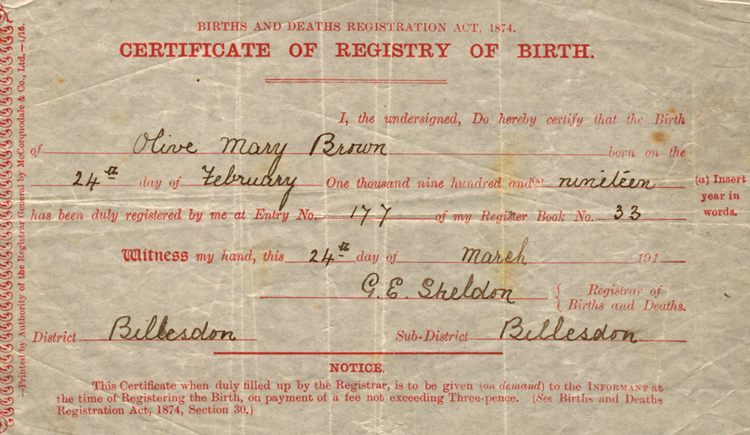 BIRTHS AND DEATHS REGISTRATION ACT, 1874.
CERTIFICATE OF REGISTRY OF BIRTH.
I, the undersigned, Do hereby certify that the Birth
of Olive Mary Brown born on the
24th day of February One thousand nine hundred and (a) nineteen
has been duly registered by me at Entry No. 177 of my Register Book No. 33
(a) Insert
year in
words.
Witness my hand, this 24th day of March 191
G. E. Sheldon { Registrar of
Births and Deaths.
District Billesdon Sub-District Billesdon
NOTICE.
This Certificate when duly filled up by the Registrar, is to be given (on demand) to the INFORMANT at
the time of Registering the Birth, on payment of a fee not exceeding Three-pence. (See Births and Deaths
Registration Act, 1874, Section 30.)
—Printed by Authority of the Registrar General by McCorquodale & Co., Ltd.—1/16.